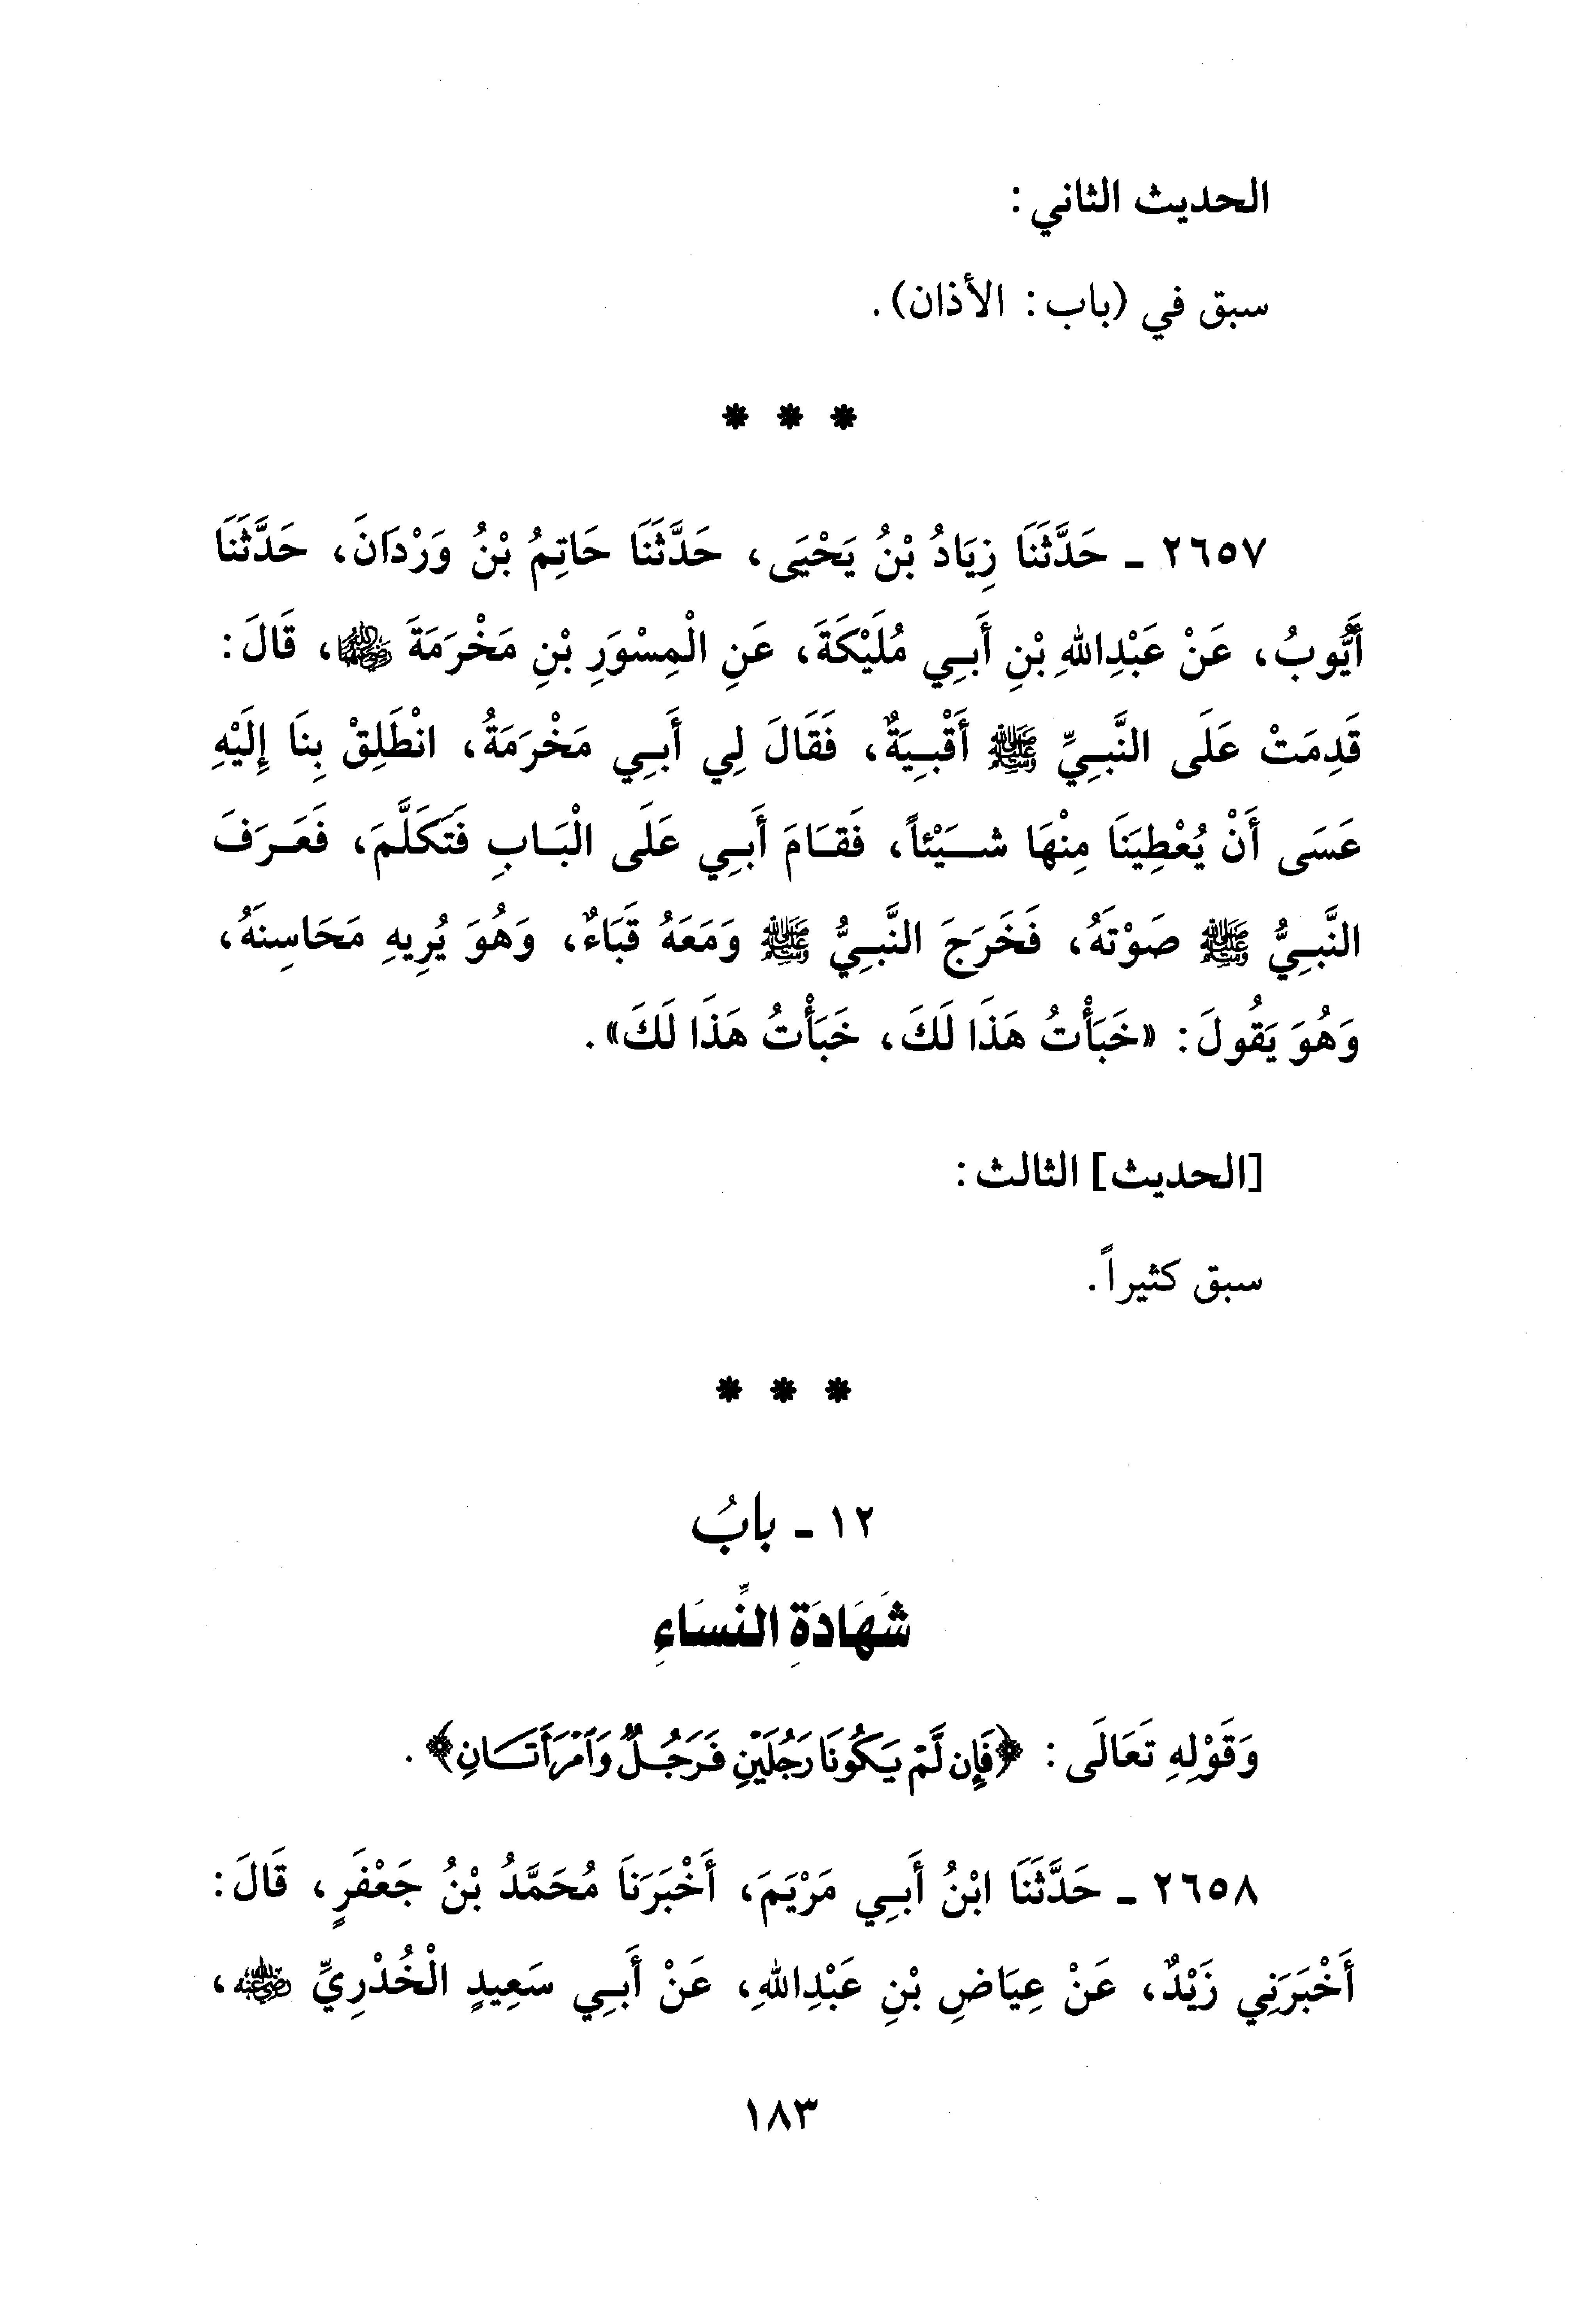 الحديث الثاني:
سبق في (باب: الأذان).
* * *
٢٦٥٧ ـ حَدَّثَنَا زِيَادُ بْنُ يَحْيَى، حَدَّثَنَا حَاتِمُ بْنُ وَرْدَانَ، حَدَّثَنَا
أَيُّوبُ، عَنْ عَبْدِاللهِ بْنِ أَبِي مُلَيْكَةَ، عَنِ الْمِسْوَرِ بْنِ مَخْرَمَةَ رضي الله عنهما، قَالَ:
قَدِمَتْ عَلَى النَّبِيِّ ﷺ أَقْبِيَةٌ، فَقَالَ لِي أَبِي مَخْرَمَةُ، انْطَلِقْ بِنَا إِلَيْهِ
عَسَى أَنْ يُعْطِيَنَا مِنْهَا شَيْئاً، فَقَامَ أَبِي عَلَى الْبَابِ فَتَكَلَّمَ، فَعَرَفَ
النَّبِيُّ ﷺ صَوْتَهُ، فَخَرَجَ النَّبِيُّ ﷺ وَمَعَهُ قَبَاءٌ، وَهُوَ يُرِيهِ مَحَاسِنَهُ،
وَهُوَ يَقُولَ: «خَبَأْتُ هَذَا لَكَ، خَبَأْتُ هَذَا لَكَ».
[الحديث] الثالث:
سبق كثيراً.
* * *
١٢ ـ بابُ
شَهَادَةِ النِّسَاءِ
وَقَوْلِهِ تَعَالَى: ﴿فَإِن لَّمْ يَكُونَا رَجُلَيْنِ فَرَجُلٌ وَٱمْرَأَتَانِ﴾.
٢٦٥٨ ـ حَدَّثَنَا ابْنُ أَبِي مَرْيَمَ، أَخْبَرَنَا مُحَمَّدُ بْنُ جَعْفَرٍ، قَالَ:
أَخْبَرَنِي زَيْدٌ، عَنْ عِيَاضِ بْنِ عَبْدِاللهِ، عَنْ أَبِي سَعِيدٍ الْخُدْرِيِّ رضي الله عنه،
١٨٣